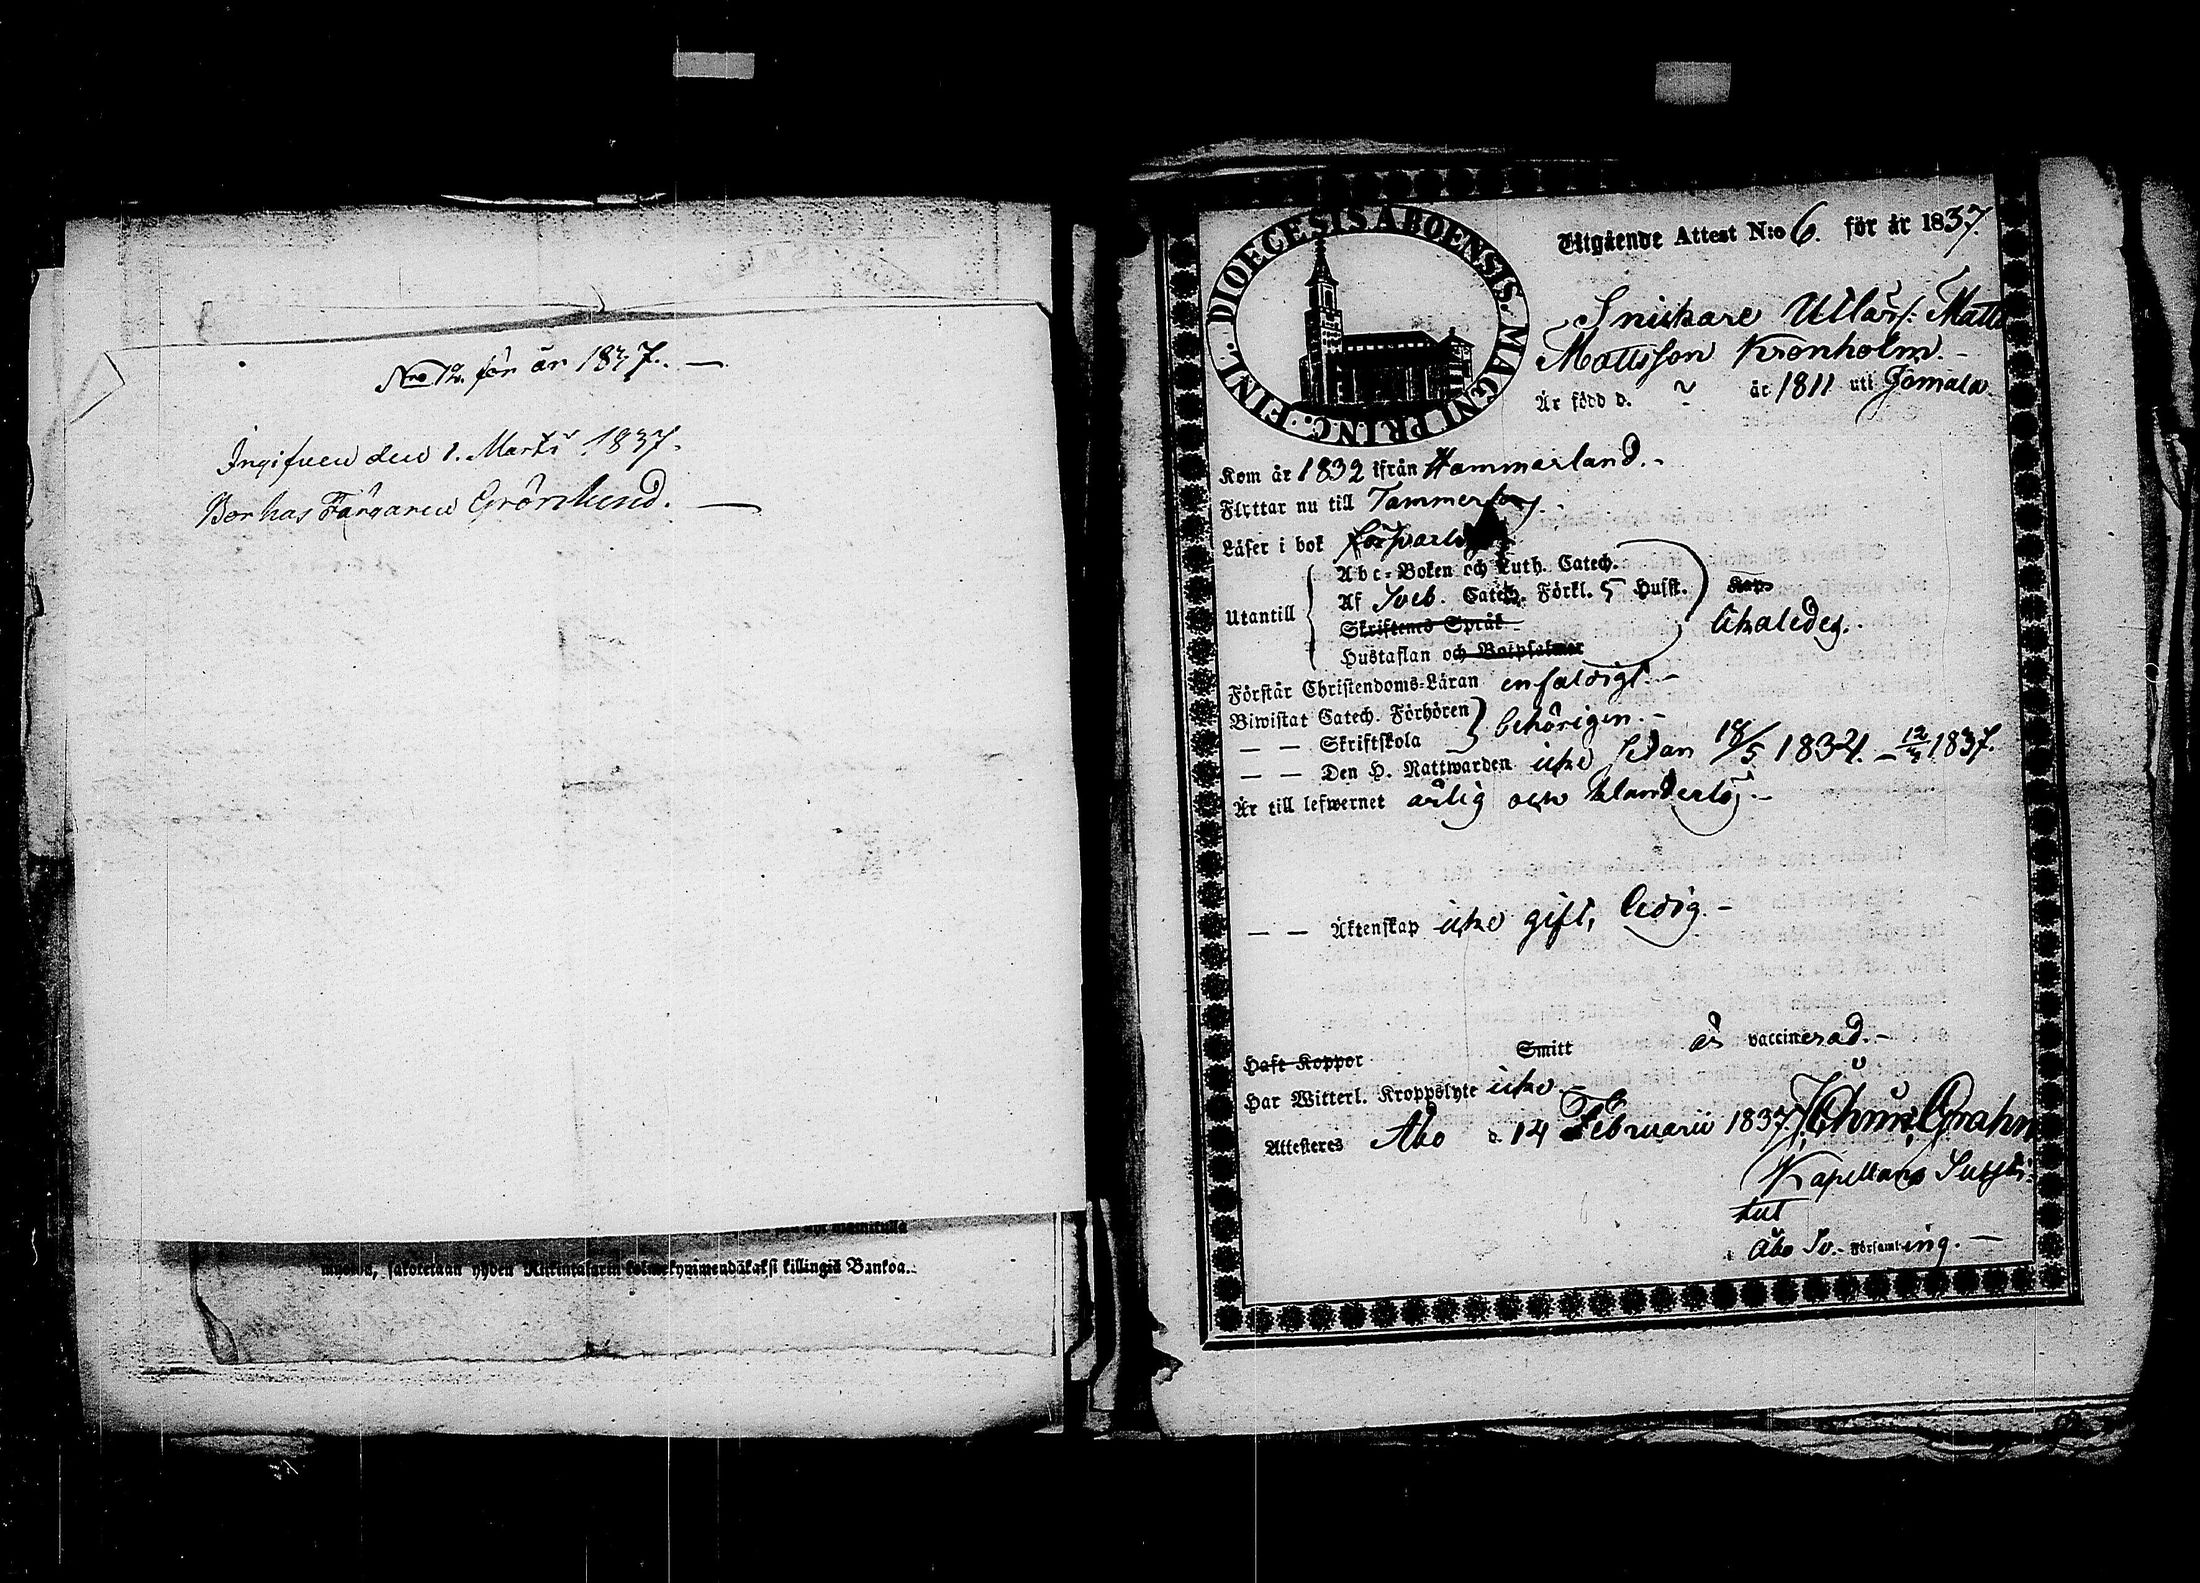 Nro 12. för år 1837. —
Ingifven den 1. Martii 1837.
Bor hos Färgaren Grönlund. —
myötä, sakotetaan yhden Riikintalarin kolmekymmendäkaksi killingiä Bankoa.
DIOECESIS ABOENSIS. MAGNI PRINC. FINL.
Utgående Attest N:o 6. för år 1837.
Snickare Matts
Mattsson Kronholm. -
Är född d. ~ år 1811 uti Jomala.
Kom år 1832 ifrån Hammarland. -
Flyttar nu till Tammerfors
Läser i bok försvarligt
Abc-Boken och Luth. Catech.
Utantill Af Sveb. Catech. Förkl. 5 Hufst.
Skriftens Språk
Hustaflan och Botpsalmer
Förstår Christendoms-Läran enfaldigt. -
Biwistat Catech. Förhören
— — Skriftskola behörigen. -
— — Den H. Nattwarden icke sedan 18/5 1834. - 1837.
Är till lefwernet ärlig och klanderlös. -
— — Äktenskap icke gift, ledig. -
Haft Koppor Smitt är vaccinerad. -
Har Witterl. Kroppslyte icke -
Attesteres Åbo d. 14 Februarii 1837. Grahn
Kapellans Substi-
tut
i Åbo Sv. Församling. —